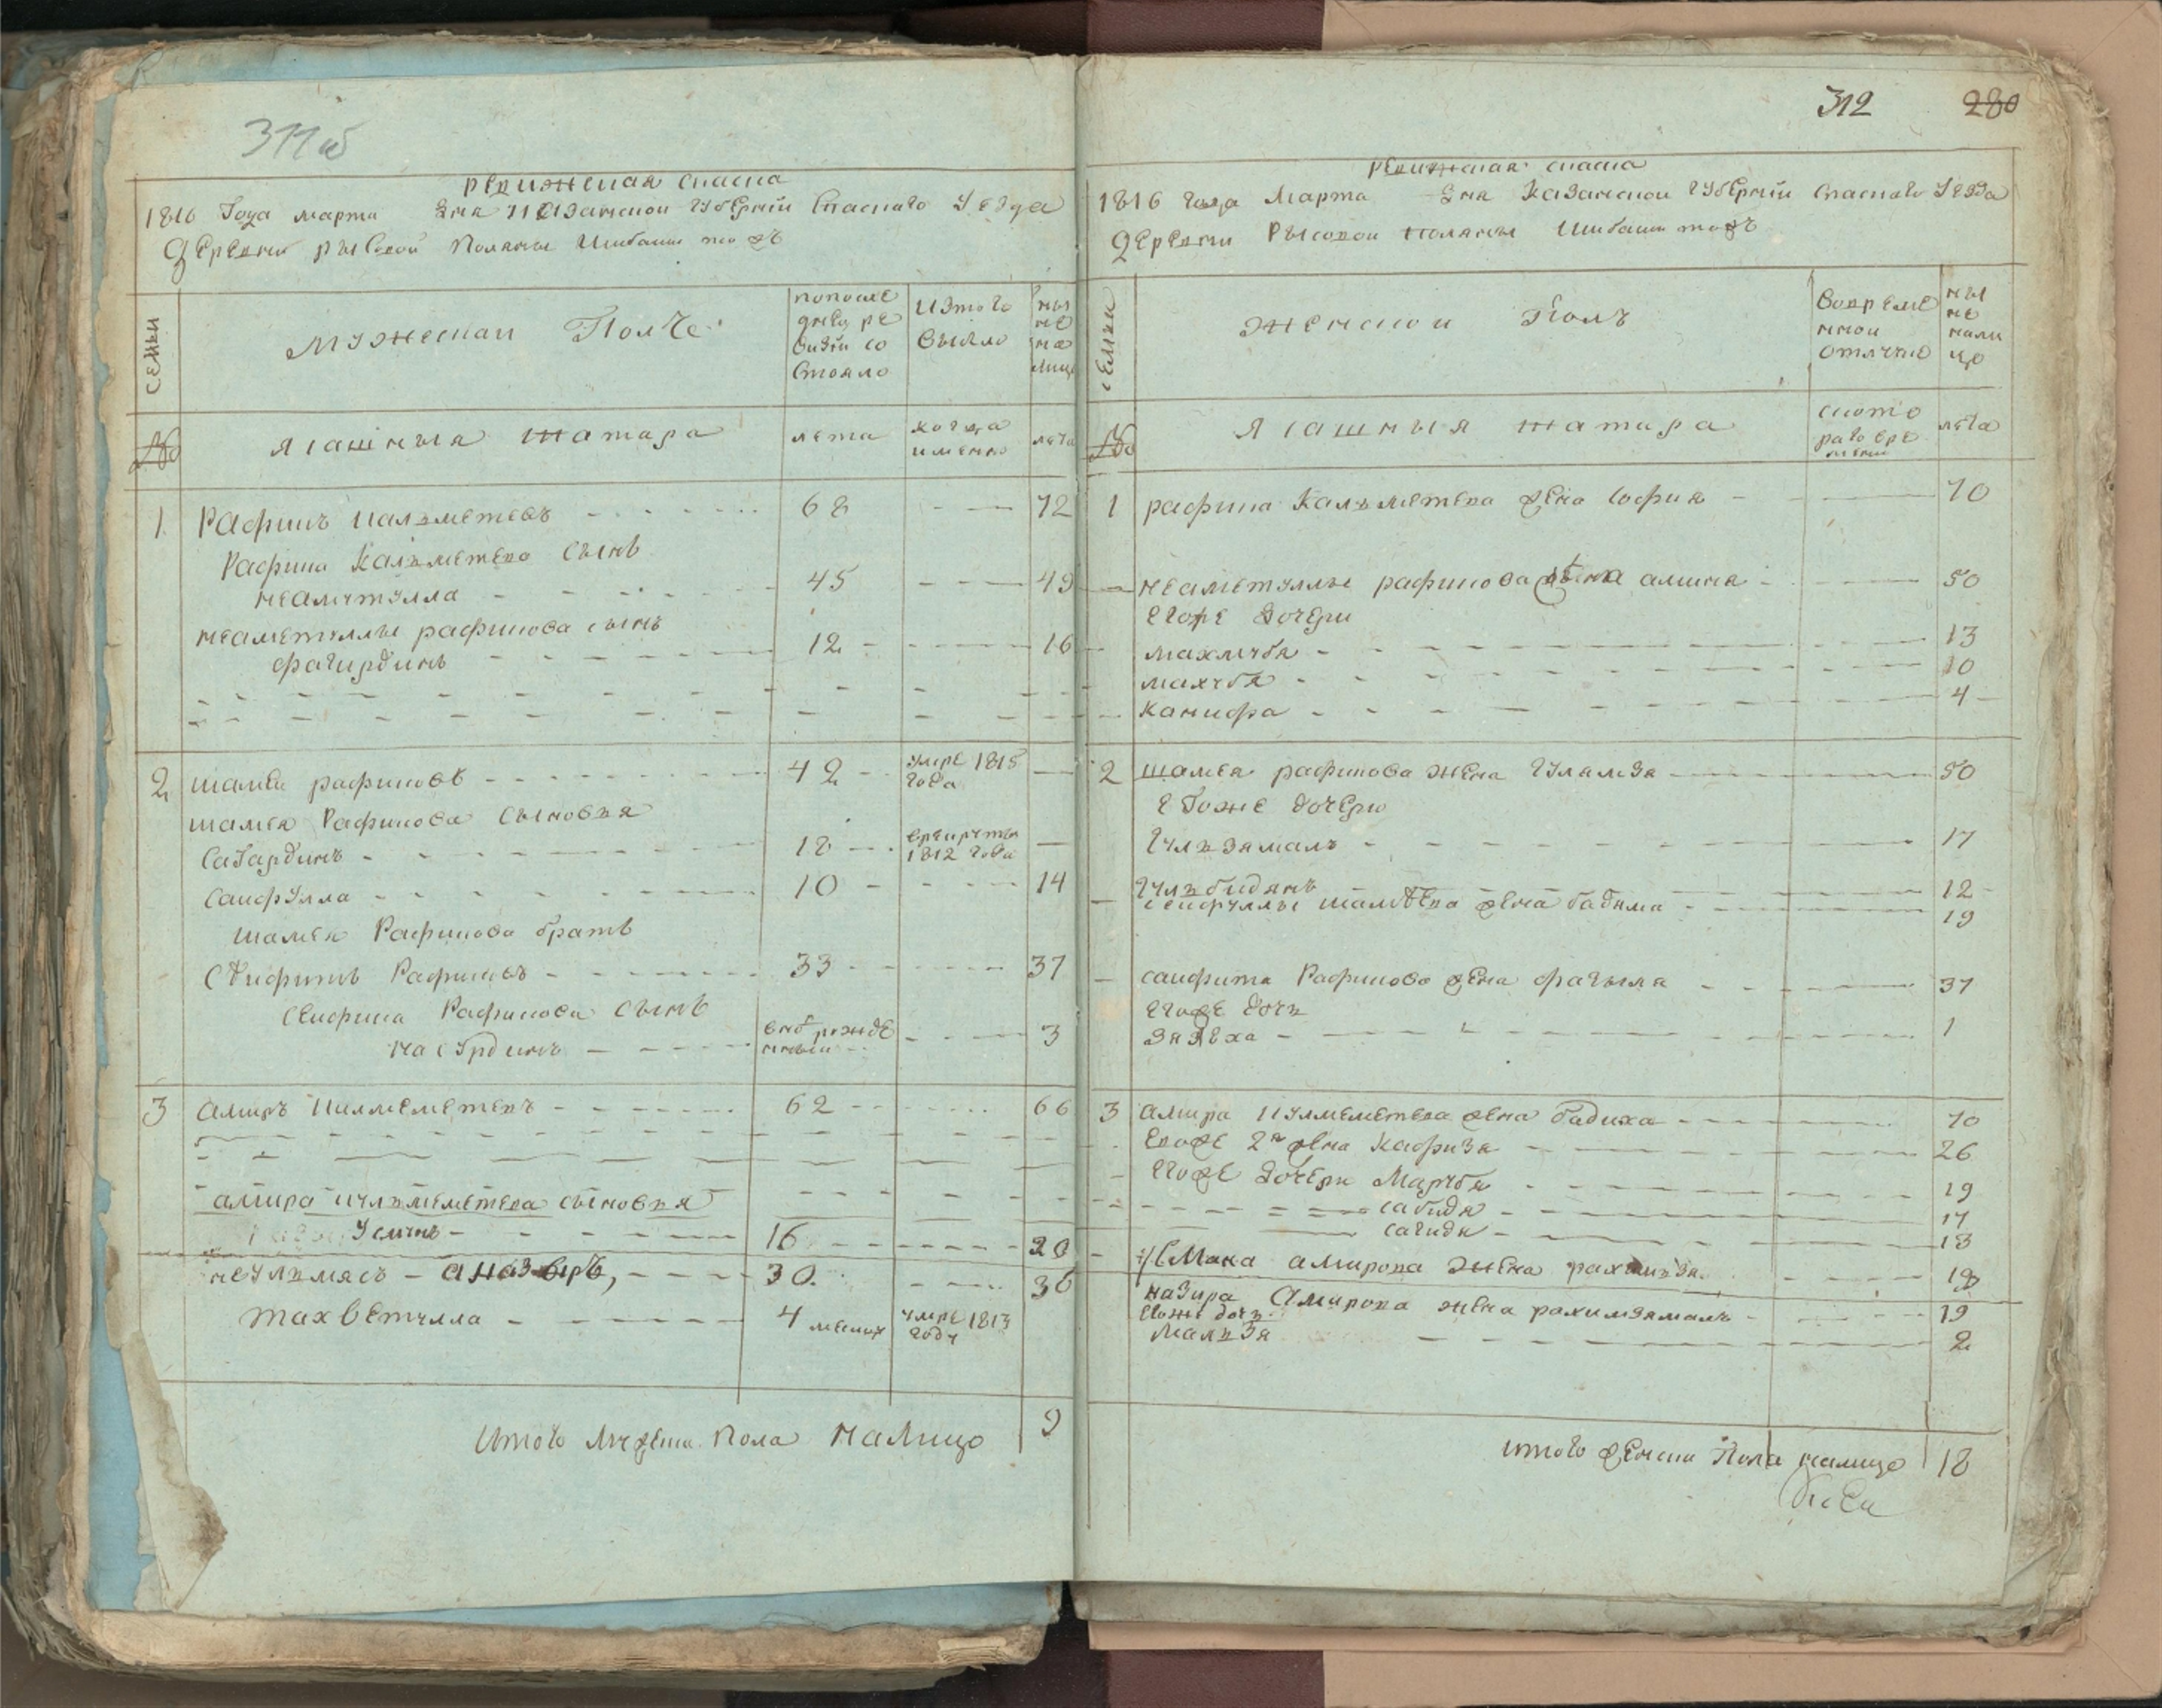 311об
ревижская спаска
1816 года марта дня Казанской губернии Спаскаго уезда
деревни рысовой Поляны Шибаши тож
семьи
мужескаи Полъ
попосле
днеи ре
визи со
стояло
изтого
выбло
ны
не
на
лицо
№
ясашныя татара
лета
когда
именно
лета
1 Рафикъ Калъметевъ 68 72
Рафика Калъметева сынъ
неаметулла 45 49
неаметуллы рафикова сынъ
фагирдинъ 12 16
2 шамея рафиковъ 42 умре 1815 года
шамея Рафикова сыновья
сагардинъ 18 в рекруты 1812 года
саифулла 10 14
шамея Рафикова братъ
сеифитъ Рафиковъ 33 37
сеифита Рафикова сынъ
насурдинъ вновь рожденный 3
3 амиръ Килмеметевъ 62 66
амира Кулмеметева сыновья
Усминъ 16 20
неулмясъ а назыръ, 30. 36
махветулла 4 месяцъ умре 1813 году
Итого Мужеска Пола Налицо 9
312 280
ревижская спаска
1816 года Марта дня Казанской губернии Спаскаго уезда
деревни Рысовой поляны Шибаши тожъ
семьи
женскои Полъ
вовреме
нной
отлучке
ны
не
нали
цо
№
Ясашныя татара
ското
раго вре
мени
лета
1 рафика Калъметева жена софия 70
неаметуллы рафикова жена амина 50
егоже дочери
махмуба 13
махуба 10
Канифа 4
2 шамея рафикова жена гулямза 50
егоже дочери
гулъзямалъ 17
гулъбидянъ 12
сеифуллы шамеева жена бадяма 19
саифита Рафикова жена фагыля 37
егоже дочь
зялеха 1
3 амира Кулмеметева жена бадиха 70
егоже 2я жена Кафиза 26
егоже дочери Маруба 19
сабида 17
сагида 13
назира Амирова жена рахимзямалъ 19
егоже дочь
малъзя 2
итого женска Пола налицо 18